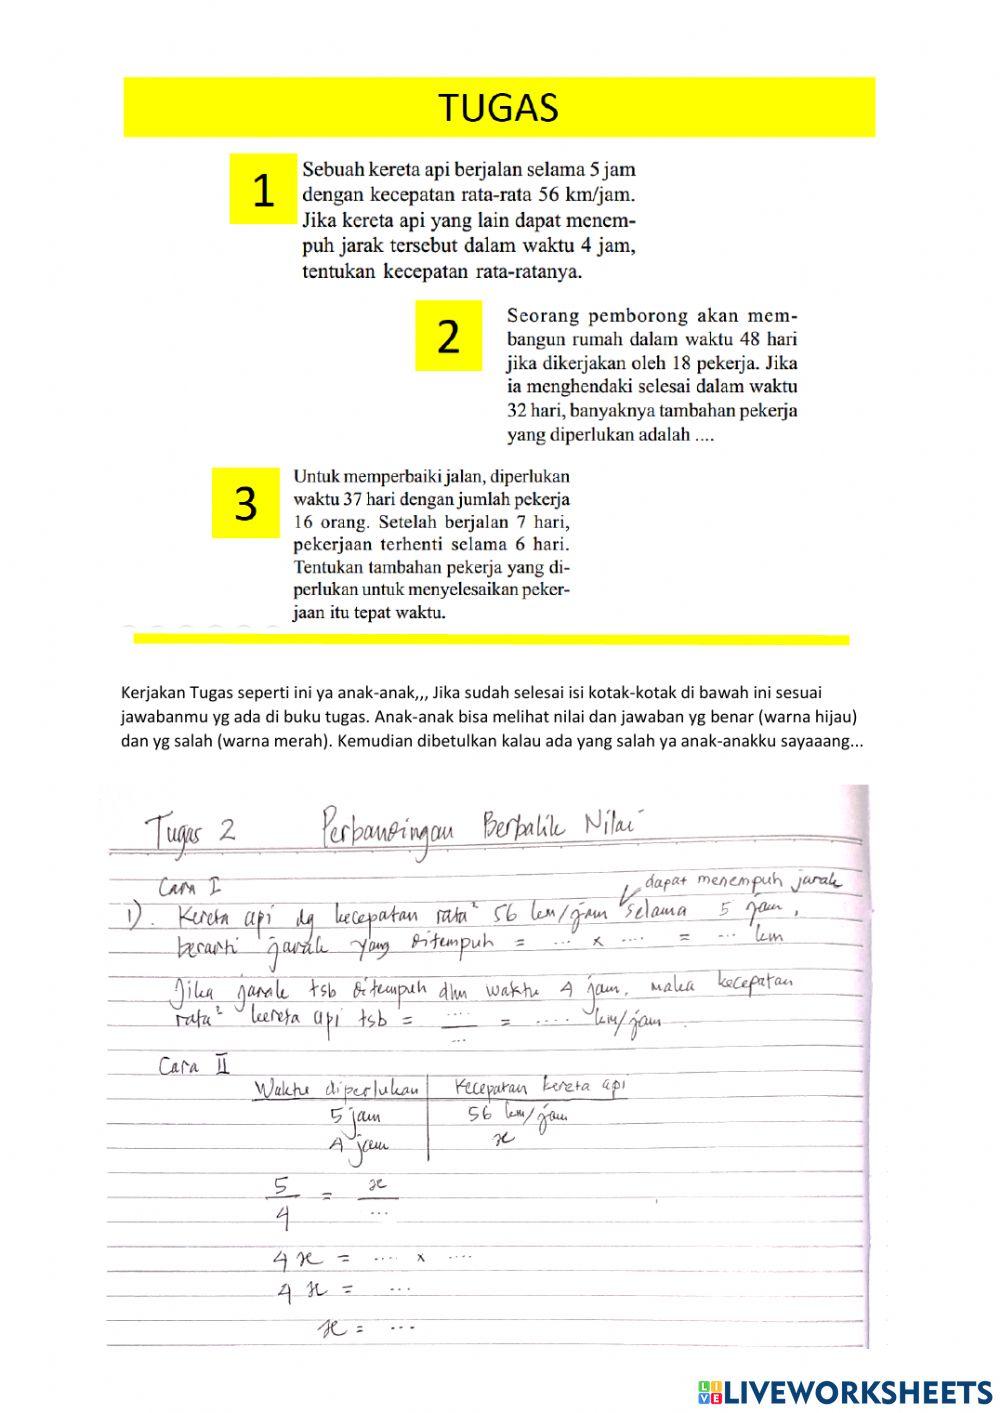 TUGAS
1
Sebuah kereta api berjalan selama 5 jam
dengan kecepatan rata-rata 56 km/jam.
Jika kereta api yang lain dapat menem-
puh jarak tersebut dalam waktu 4 jam,
tentukan kecepatan rata-ratanya.
2
Seorang pemborong akan mem-
bangun rumah dalam waktu 48 hari
jika dikerjakan oleh 18 pekerja. Jika
ia menghendaki selesai dalam waktu
32 hari, banyaknya tambahan pekerja
yang diperlukan adalah ....
3
Untuk memperbaiki jalan, diperlukan
waktu 37 hari dengan jumlah pekerja
16 orang. Setelah berjalan 7 hari,
pekerjaan terhenti selama 6 hari.
Tentukan tambahan pekerja yang di-
perlukan untuk menyelesaikan peker-
jaan itu tepat waktu.
Kerjakan Tugas seperti ini ya anak-anak,,, Jika sudah selesai isi kotak-kotak di bawah ini sesuai
jawabanmu yg ada di buku tugas. Anak-anak bisa melihat nilai dan jawaban yg benar (warna hijau)
dan yg salah (warna merah). Kemudian dibetulkan kalau ada yang salah ya anak-anakku sayaaang...
Tugas 2 Perbandingan Berbalik Nilai
Cara I
dapat menempuh jarak
1). Kereta api dg kecepatan rata² 56 km/jam selama 5 jam,
berarti jarak yang ditempuh = ... x .... = ... km
Jika jarak tsb ditempuh dlm waktu 4 jam, maka kecepatan
rata² kereta api tsb = ..../... = ..... km/jam.
Cara II
Waktu diperlukan | Kecepatan kereta api
5 jam | 56 km/jam
4 jam | x
5/4 = x/...
4x = .... x ....
4x = ...
x = ...
LIVEWORKSHEETS